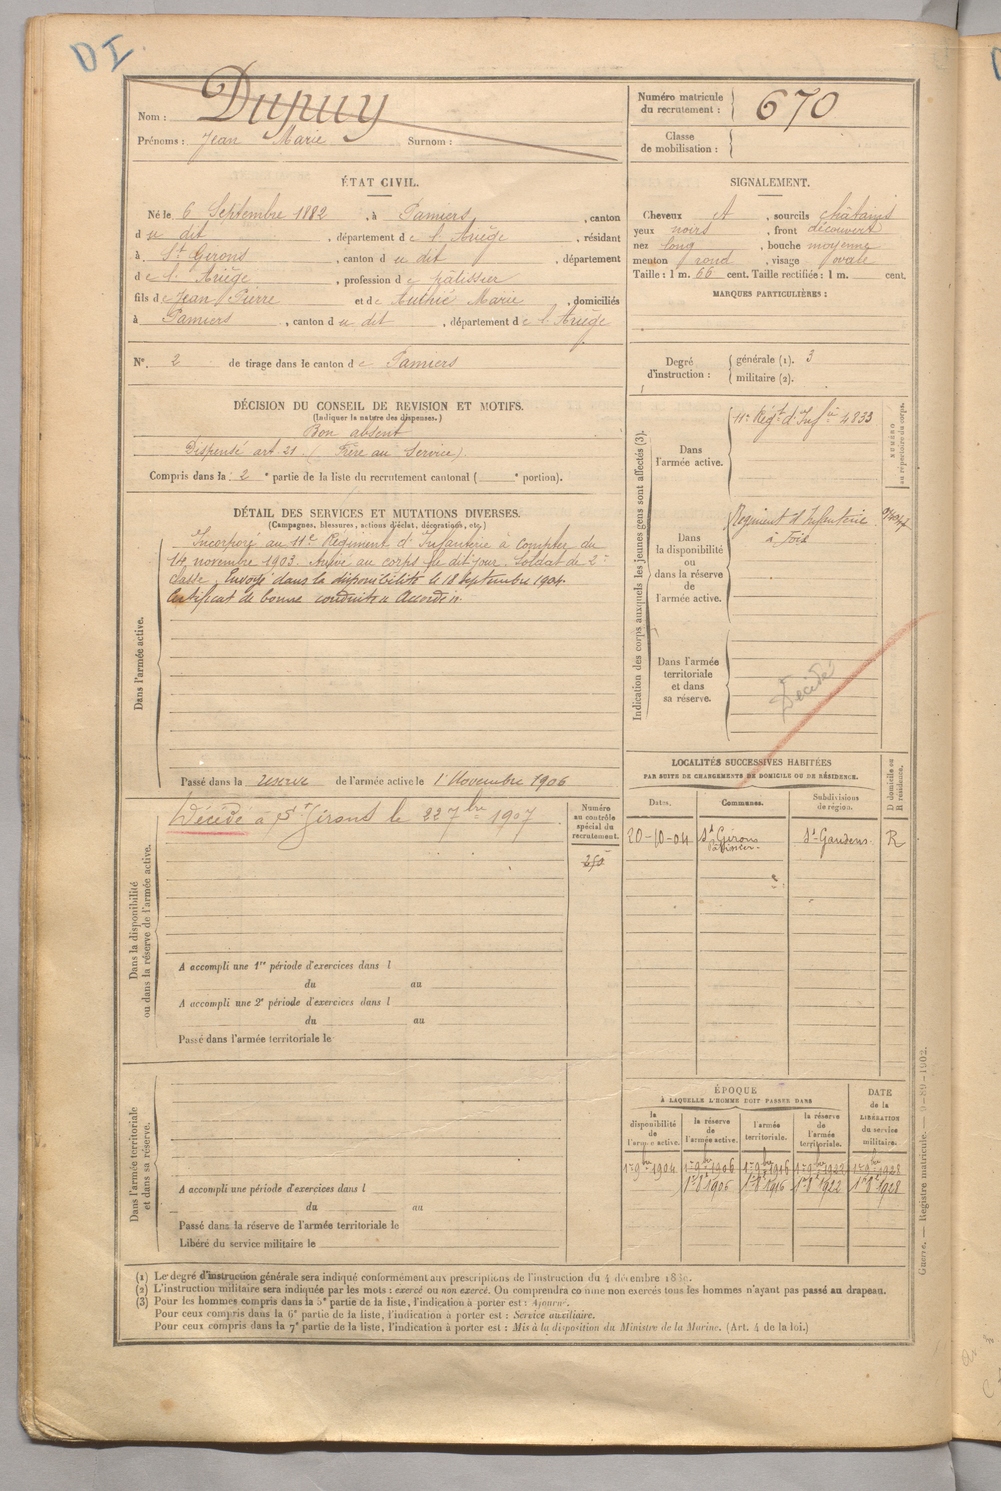 DI
Nom : Dupuy
Prénoms : Jean Marie Surnom :
Numéro matricule du recrutement : 670
Classe de mobilisation :
ÉTAT CIVIL.
Né le 6 Septembre 1882, à Pamiers, canton
du dit, département de l'Ariège, résidant
à St Girons, canton du dit, département
de l'Ariège, profession de pâtissier
fils de Jean Pierre et de Authié Marie, domiciliés
à Pamiers, canton du dit, département de l'Ariège
SIGNALEMENT.
Cheveux et, sourcils châtains
yeux noirs, front découvert
nez long, bouche moyenne
menton rond, visage ovale
Taille : 1 m. 66 cent. Taille rectifiée : 1 m. cent.
MARQUES PARTICULIÈRES :
N°. 2 de tirage dans le canton de Pamiers
Degré d'instruction : générale (1). 3
militaire (2).
DÉCISION DU CONSEIL DE REVISION ET MOTIFS.
(Indiquer la nature des dispenses.)
Bon absent
Dispensé art 21 (Frère au Service)
Compris dans la 2e partie de la liste du recrutement cantonal ( e portion).
DÉTAIL DES SERVICES ET MUTATIONS DIVERSES.
(Campagnes, blessures, actions d'éclat, décorations, etc.)
Dans l'armée active.
Incorporé au 11e Régiment d'Infanterie à compter du
14 novembre 1903. Arrivé au corps le dit jour. Soldat de 2e
classe. Envoyé dans la disponibilité le 18 septembre 1904.
Certificat de bonne conduite Accordé
Passé dans la réserve de l'armée active le 1 Novembre 1906
Indication des corps auxquels les jeunes gens sont affectés (3).
NUMÉRO au répertoire du corps.
Dans l'armée active.
11e Régt d'Infie 4833
Dans la disponibilité ou dans la réserve de l'armée active.
Régiment d'Infanterie
à Foix
Dans l'armée territoriale et dans sa réserve.
Décédé
Dans la disponibilité ou dans la réserve de l'armée active.
Décédé à St Girons le 22 7bre 1907
Numéro au contrôle spécial du recrutement.
A accompli une 1re période d'exercices dans l
du au
A accompli une 2e période d'exercices dans l
du au
Passé dans l'armée territoriale le
LOCALITÉS SUCCESSIVES HABITÉES
PAR SUITE DE CHANGEMENTS DE DOMICILE OU DE RÉSIDENCE.
Dates. Communes. Subdivisions de région. D domicile ou R résidence.
20-10-04 St Girons St-Gaudens R
Pâtissier.
Dans l'armée territoriale et dans sa réserve.
A accompli une période d'exercices dans l
du au
Passé dans la réserve de l'armée territoriale le
Libéré du service militaire le
ÉPOQUE
À LAQUELLE L'HOMME DOIT PASSER DANS
DATE de la LIBÉRATION du service militaire.
la disponibilité de l'armée active. la réserve de l'armée active. l'armée territoriale. la réserve de l'armée territoriale.
1er 9bre 1904 1er 9bre 1906 1er 9bre 1916 1er 9bre 1922 1er 9bre 1928
1er 8bre 1906 1er 8bre 1916 1er 8bre 1922 1er 8bre 1928
(1) Le degré d'instruction générale sera indiqué conformément aux prescriptions de l'instruction du 4 décembre
(2) L'instruction militaire sera indiquée par les mots : exercé ou non exercé. On comprendra comme non exercés tous les hommes n'ayant pas passé au drapeau.
(3) Pour les hommes compris dans la 5e partie de la liste, l'indication à porter est : Ajourné.
Pour ceux compris dans la 6e partie de la liste, l'indication à porter est : Service auxiliaire.
Pour ceux compris dans la 7e partie de la liste, l'indication à porter est : Mis à la disposition du Ministre de la Marine. (Art. 4 de la loi.)
Guerre. — Registre matricule. — 9-89-1902.